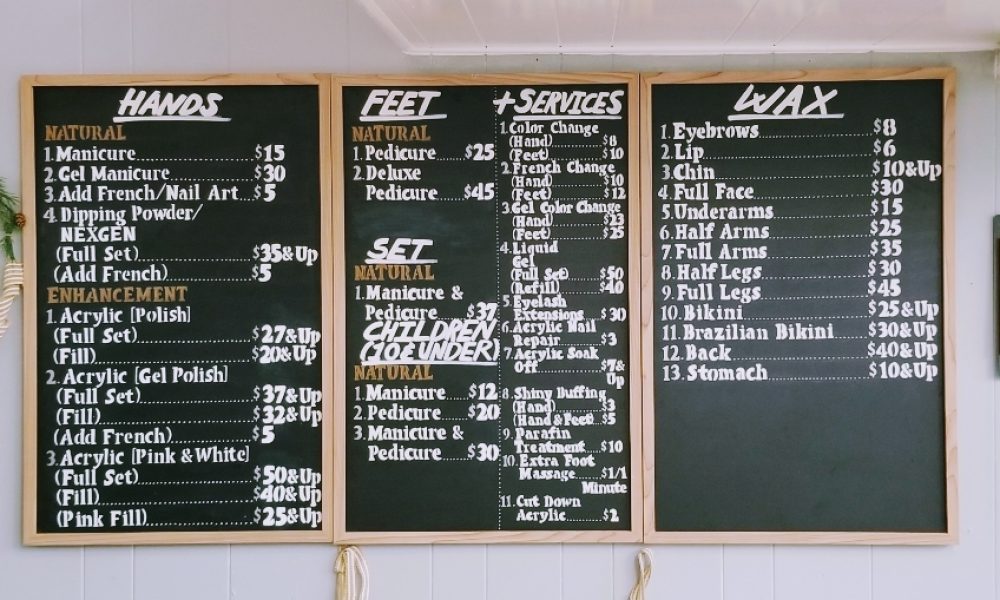 HANDS
NATURAL
1. Manicure $15
2. Gel Manicure $30
3. Add French/Nail Art $5
4. Dipping Powder/
NEXGEN
(Full Set) $35&Up
(Add French) $5
ENHANCEMENT
1. Acrylic [Polish]
(Full Set) $27&Up
(Fill) $20&Up
2. Acrylic [Gel Polish]
(Full Set) $37&Up
(Fill) $32&Up
(Add French) $5
3. Acrylic [Pink & White]
(Full Set) $50&Up
(Fill) $40&Up
(Pink Fill) $25&Up
FEET
NATURAL
1. Pedicure $25
2. Deluxe
Pedicure $45
SET
NATURAL
1. Manicure &
Pedicure $37
CHILDREN
(10 & UNDER)
NATURAL
1. Manicure $12
2. Pedicure $20
3. Manicure &
Pedicure $30
+ SERVICES
1. Color Change
(Hand) $8
(Feet) $10
2. French Change
(Hand) $10
(Feet) $12
3. Gel Color Change
(Hand) $23
(Feet) $25
4. Liquid
Gel
(Full Set) $50
(Refill) $40
5. Eyelash
Extensions $30
6. Acrylic Nail
Repair $3
7. Acrylic Soak
Off $7&
Up
8. Shiny Buffing
(Hand) $3
(Hand & Feet) $5
9. Parafin
Treatment $10
10. Extra Foot
Massage $1/1
Minute
11. Cut Down
Acrylic $2
WAX
1. Eyebrows $8
2. Lip $6
3. Chin $10&Up
4. Full Face $30
5. Underarms $15
6. Half Arms $25
7. Full Arms $35
8. Half Legs $30
9. Full Legs $45
10. Bikini $25&Up
11. Brazilian Bikini $30&Up
12. Back $40&Up
13. Stomach $10&Up